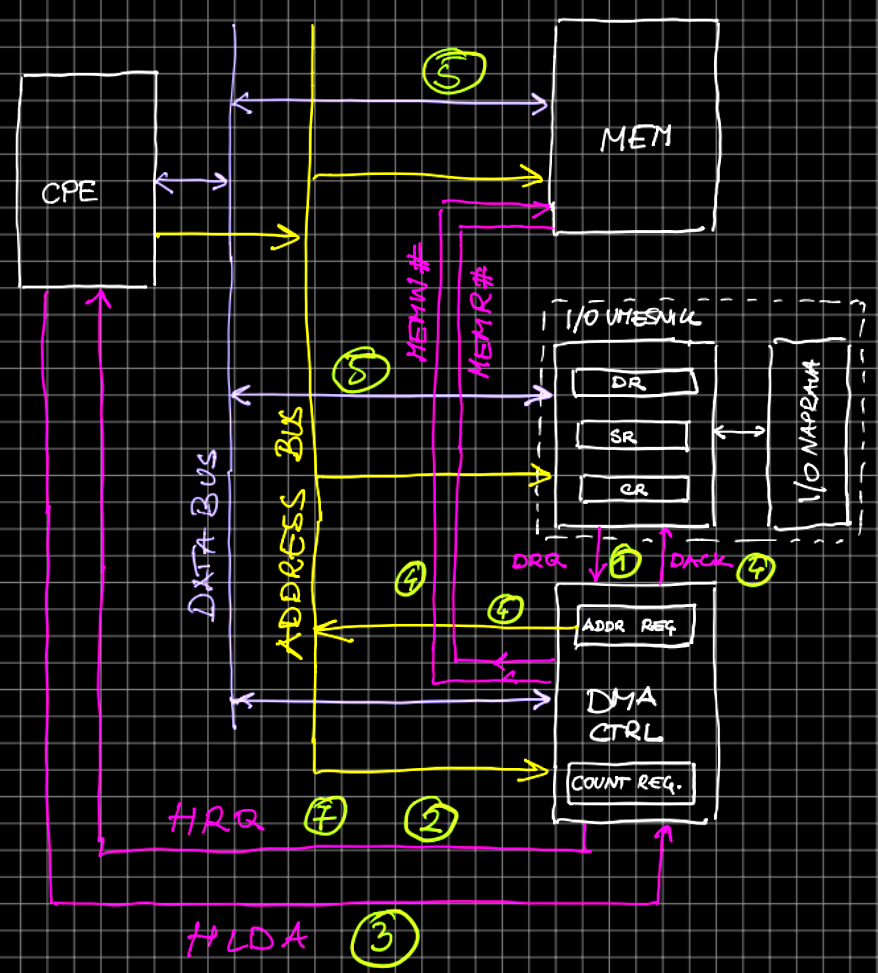 5
MEM
CPE
MEMW#
MEMR#
I/O VMESNIK
5
DR
SR
CR
I/O NAPRAVA
DATA BUS
ADDRESS BUS
DRQ
1
DACK
4
4
4
ADDR REG
DMA
CTRL
COUNT REG.
HRQ
7
2
HLDA
3